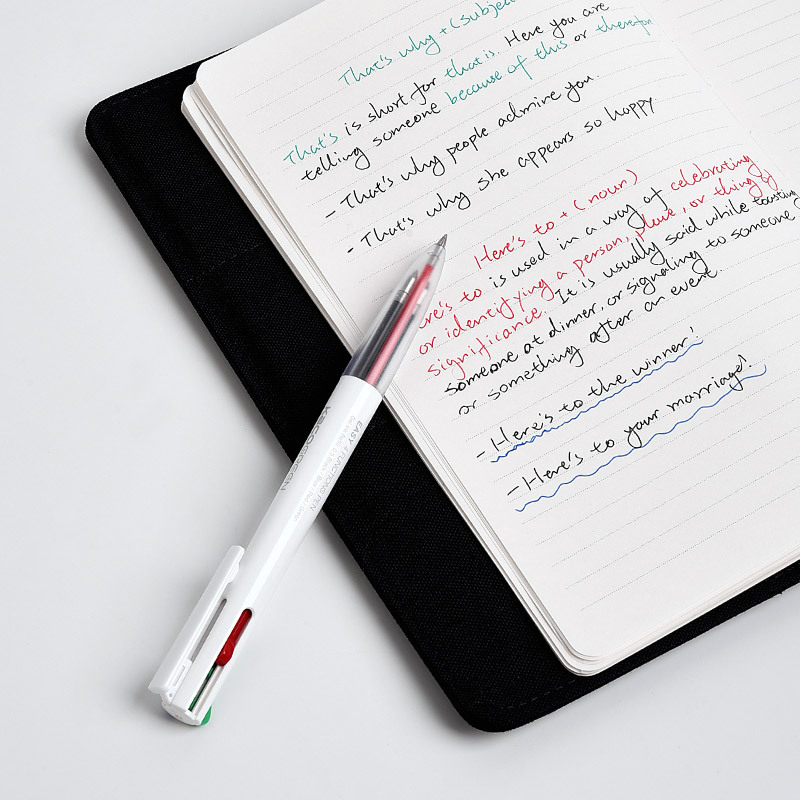 That's why + (subject
That's is short for that is. Here you are
telling someone because of this or therefore
- That's why people admire you.
- That's why she appears so happy
Here's to + (noun)
re's to is used in a way of celebrating
or identifying a person, place, or thing of
significance. It is usually said while toasting
someone at dinner, or signaling to someone
or something after an event.
- Here's to the winner!
- Here's to your marriage!
KACOGREEN
EASY 4 FUNCTIONS PEN